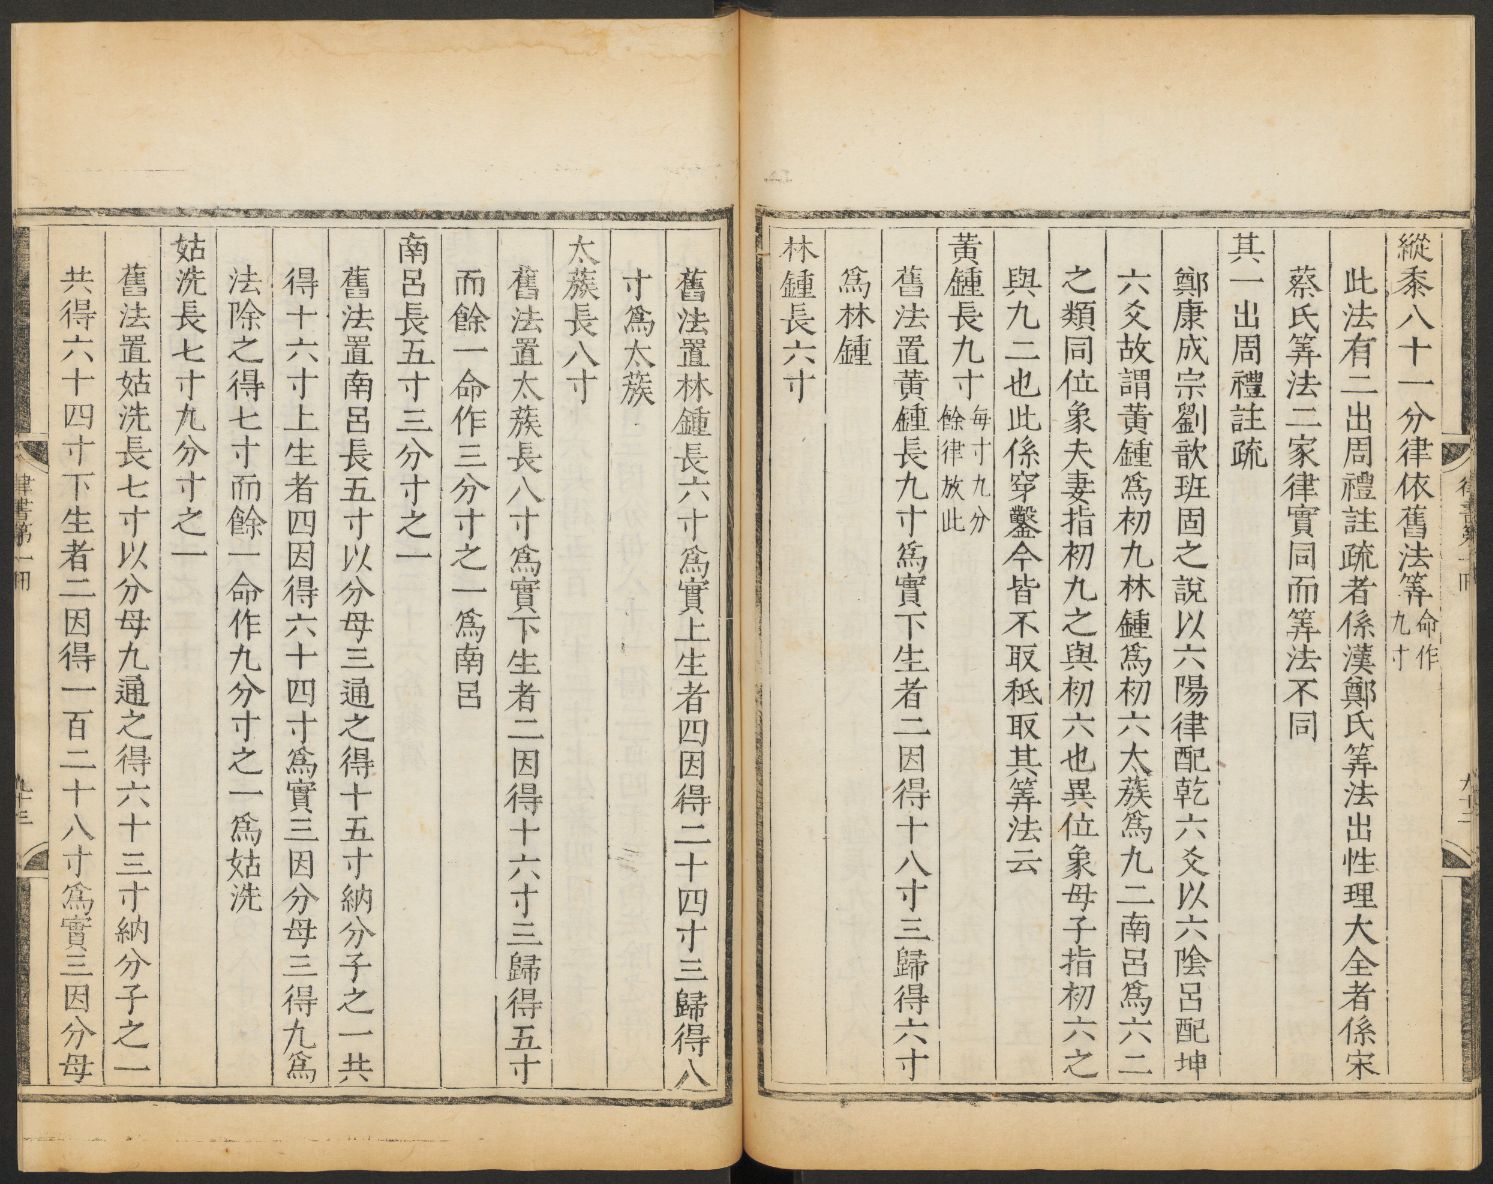 縱黍八十一分律依舊法筭命作九寸
此法有二出周禮註疏者係漢鄭氏筭法出性理大全者係宋
蔡氏筭法二家律實同而筭法不同
其一出周禮註疏
鄭康成宗劉歆班固之說以六陽律配乾六爻以六陰呂配坤
六爻故謂黃鍾爲初九林鍾爲初六太蔟爲九二南呂爲六二
之類同位象夫妻指初九之與初六也異位象母子指初六之
與九二也此係穿鑿今皆不取秪取其筭法云
黃鍾長九寸每寸九分餘律放此
舊法置黃鍾長九寸爲實下生者二因得十八寸三歸得六寸
爲林鍾
林鍾長六寸
舊法置林鍾長六寸爲實上生者四因得二十四寸三歸得八
寸爲太蔟
太蔟長八寸
舊法置太蔟長八寸爲實下生者二因得十六寸三歸得五寸
而餘一命作三分寸之一爲南呂
南呂長五寸三分寸之一
舊法置南呂長五寸以分母三通之得十五寸納分子之一共
得十六寸上生者四因得六十四寸爲實三因分母三得九爲
法除之得七寸而餘一命作九分寸之一爲姑洗
姑洗長七寸九分寸之一
舊法置姑洗長七寸以分母九通之得六十三寸納分子之一
共得六十四寸下生者二因得一百二十八寸爲實三因分母
律書第一冊